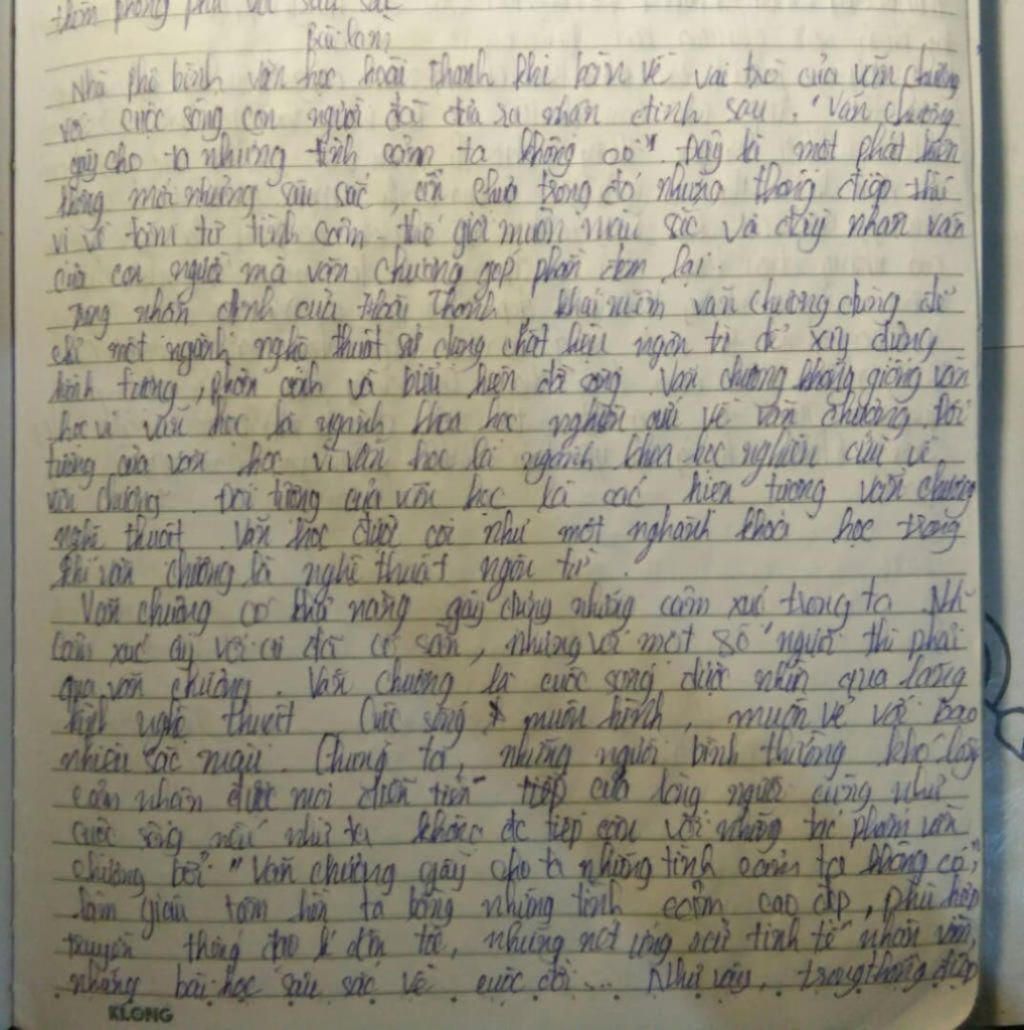 thêm phong phú và sâu sắc
Bài làm
Nhà phê bình văn học hoài thanh khi bàn về vai trò của văn chương
với cuộc sống con người đã đưa ra nhận định sau. "Văn chương
gây cho ta những tình cảm ta không có". Đây là một phát hiện
không mới nhưng sâu sắc, ẩn chứa trong đó những thông điệp thú
vị về tâm tư tình cảm. thế giới muôn màu sắc và đầy nhân văn
của con người mà văn chương góp phần đem lại.
Trong nhận định của Hoài Thanh, khái niệm văn chương dùng để
chỉ một ngành nghệ thuật sử dụng chất liệu ngôn từ để xây dựng
hình tượng, phản ánh và biểu hiện đời sống. Văn chương không giống văn
học vì văn học là ngành khoa học nghiên cứu về văn chương. Đối
tượng của văn học vì văn học là ngành khoa học nghiên cứu về
văn chương. Đối tượng của văn học là các hiện tượng văn chương
nghệ thuật. Văn học được coi như một nghành khoa học trong
khi văn chương là nghệ thuật ngôn từ.
Văn chương có khả năng gây dựng những cảm xúc trong ta. Nh
cảm xúc ấy với có đã có sẵn, nhưng với một số người thì phải
qua văn chương. Văn chương là cuộc sống được nhìn qua lăng
kính nghệ thuật. Cuộc sống muôn hình, muôn vẻ với bao
nhiêu sắc màu. Chúng ta, những người bình thường khó lòng
cảm nhận được mọi diễn tiến tiếp của lòng người cũng như
cuộc sống nếu như ta không đc tiếp cận với những tác phẩm văn
chương bởi "Văn chương gây cho ta những tình cảm ta không có",
làm giàu tâm hồn ta bằng những tình cảm cao đẹp, phù hợp
truyền thống đạo lí dân tộc, những nét ứng xử tinh tế nhân văn,
những bài học sâu sắc về cuộc đời.... Như vậy, trong thông điệp
KLONG